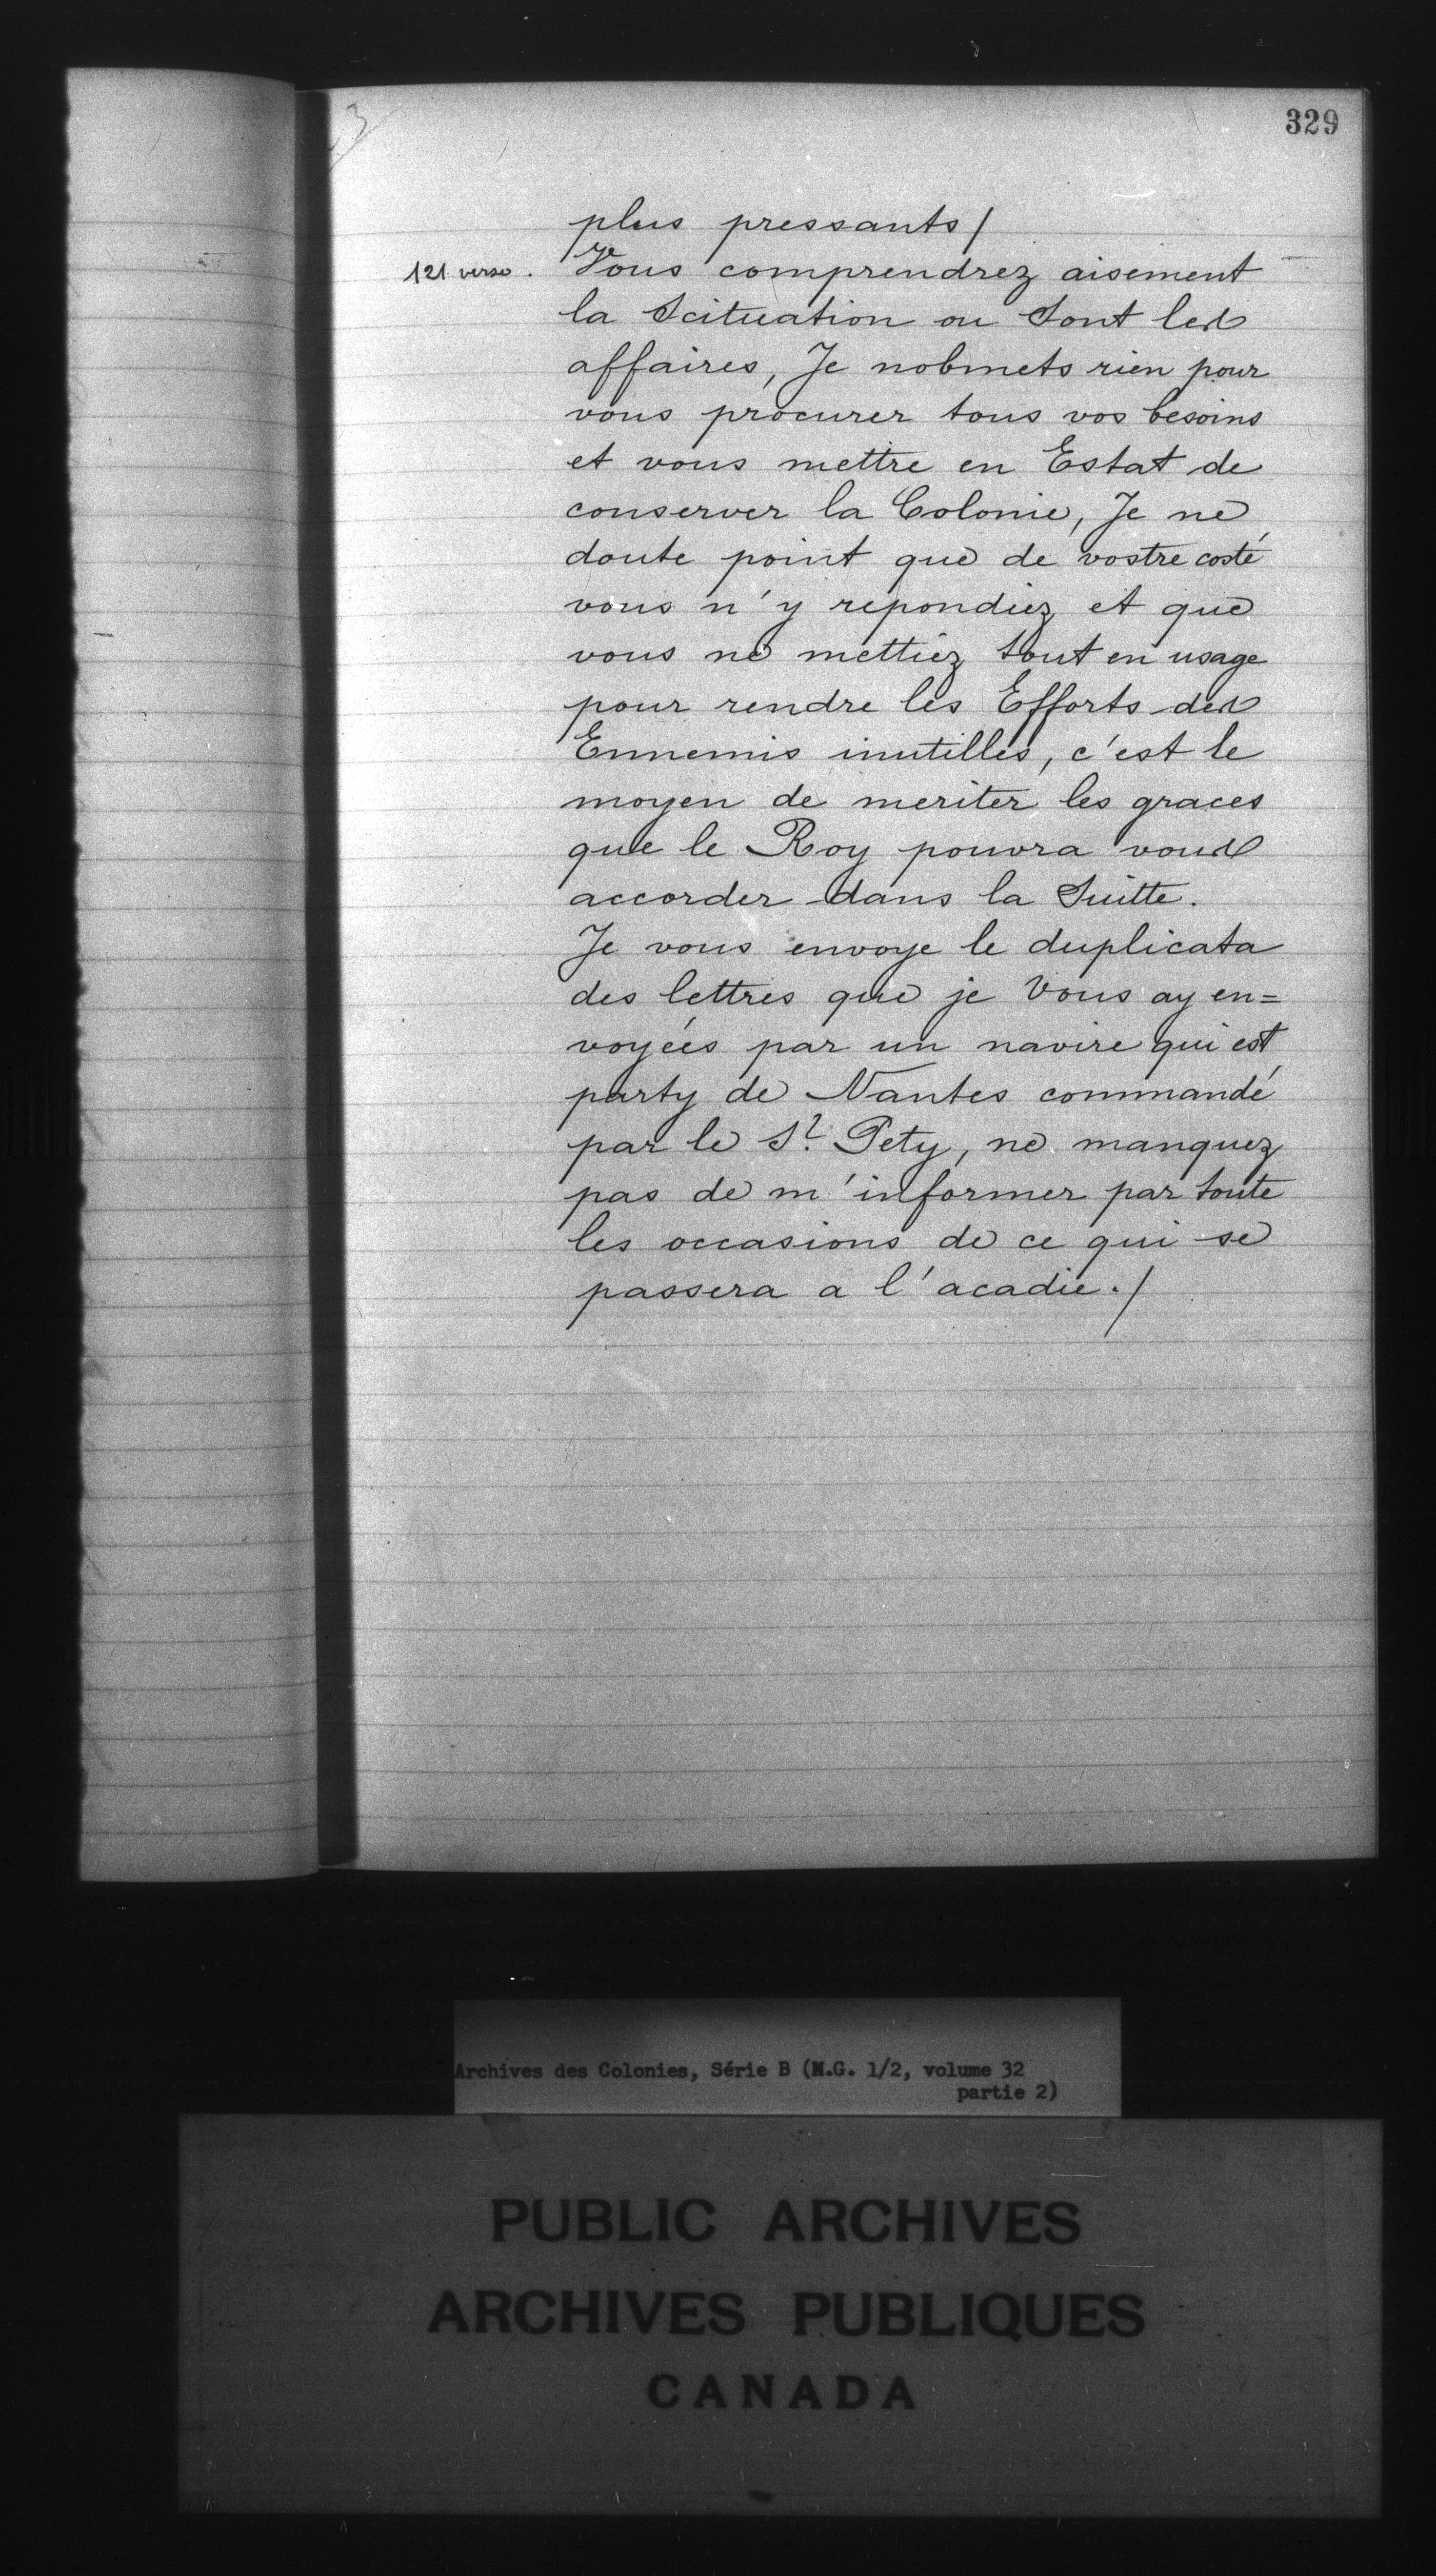 329
plus pressants /
121 verso. Vous comprendrez aisement
la Scituation ou Sont les
affaires, Je nobmets rien pour
vous procurer tous vos besoins
et vous mettre en Estat de
conserver la Colonie, Je ne
doute point que de vostre costé
vous n'y repondiez et que
vous ne mettiez tout en usage
pour rendre les Efforts des
Ennemis inutilles, c'est le
moyen de meriter les graces
que le Roy pouvra vous
accorder dans la Suitte.
Je vous envoye le duplicata
des lettres que je Vous ay en=
voyées par un navire qui est
party de Nantes commandé
par le Sr. Pety, ne manquez
pas de m'informer par toute
les occasions de ce qui se
passera a l'acadie./
Archives des Colonies, Série B (M.G. 1/2, volume 32
partie 2)
PUBLIC ARCHIVES
ARCHIVES PUBLIQUES
CANADA